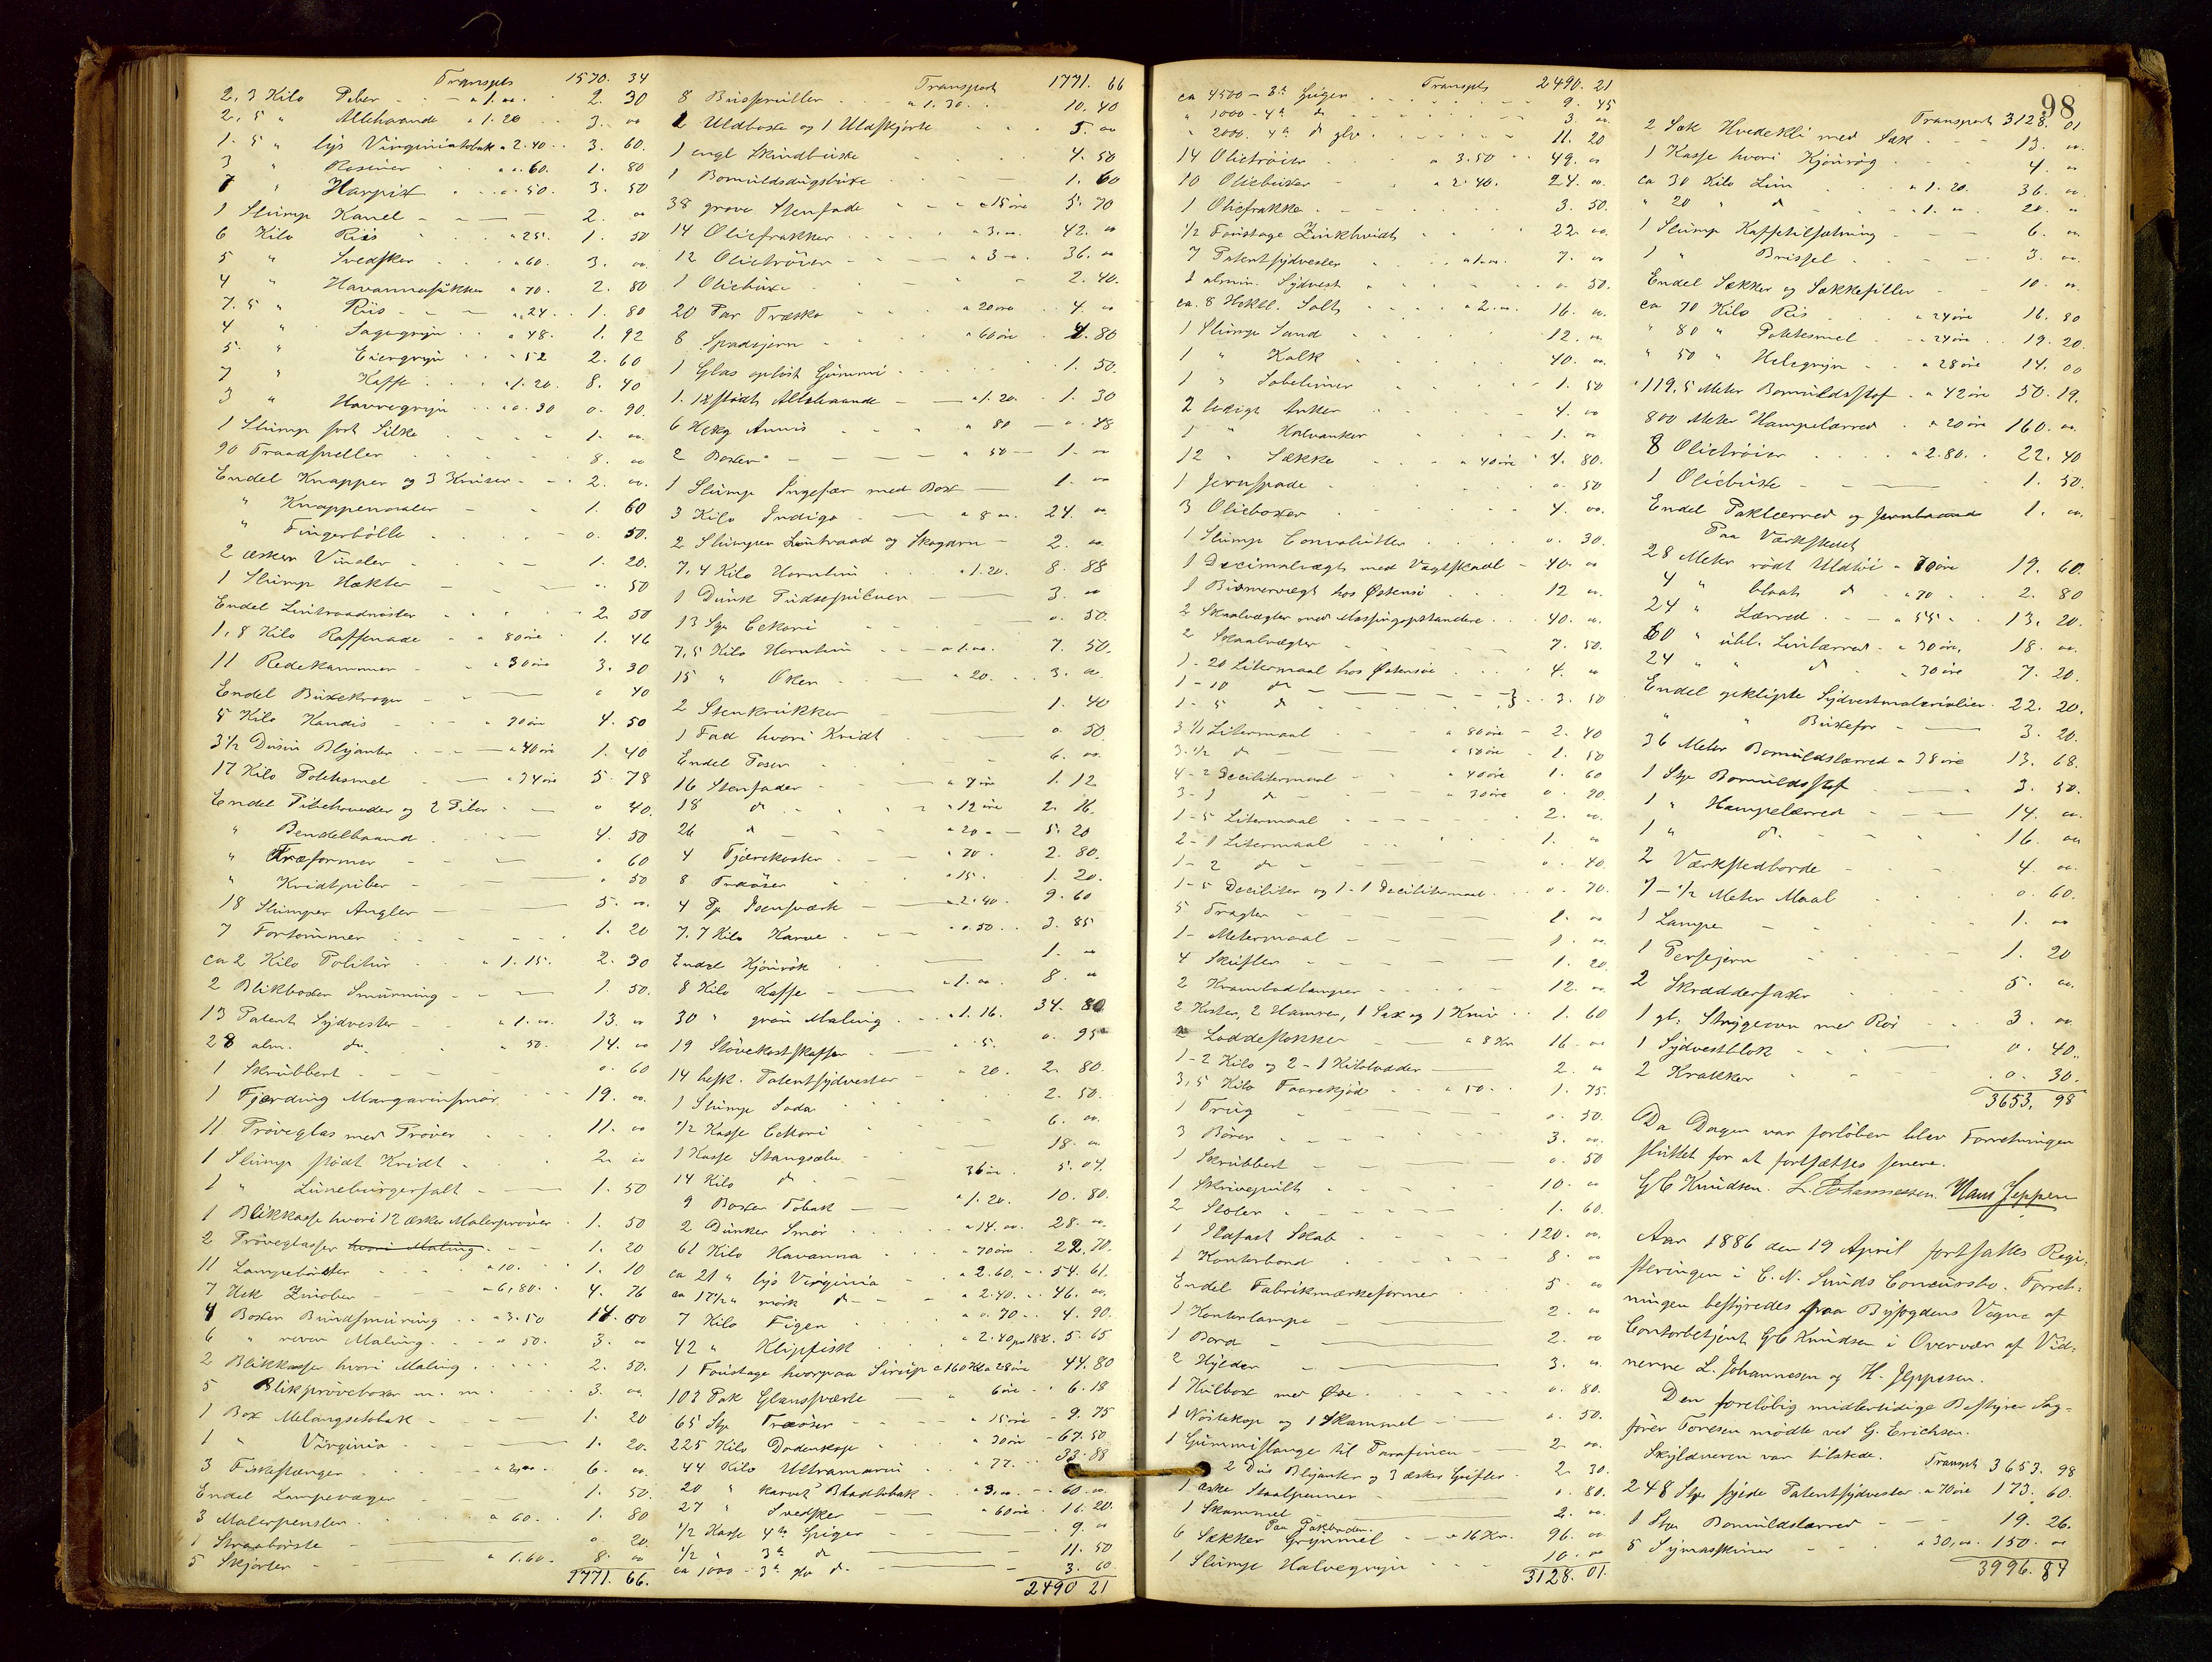 Transpts 1570. 34
2,3 Kilo Peber - - a 1.00 2. 30
2,5 " Allehaande a 1.20 3. 00
1.5 " lys Virginiatobak a 2.40 3. 60.
3 " Rosiner a 0.60. 1. 80
7 " Harpix a 0.50. 3. 50
1 Slump Kanel 2. 00
6 Kilo Riis a 25. 1. 50
5 " Svedsker a 60. 3. 00
4 " Havannasukker a 70. 2. 80
7.5 " Riis a 24 1. 80
4 " Sagogryn a 48. 1. 92
5. " Eiergryn a 52 2. 60
7 " Kaffe a 1.20. 8. 40
3 " Havregryn a 0.30 0. 90.
1 Slump sort Silke 1. 00
90 Traadsneller 8. 00
Endel Knapper og 3 Kruser 2. 00.
" Knappenaaler 1. 60
" Fingerbølle 0. 50.
2 æsker Vinder 1. 20.
1 Slump Hækter 50
Endel Lintraadnøster 2. 50
1,8 Kilo Raffenade a 80 øre 1. 46
11 Redekammer a 30 øre 3. 30
Endel Buxekroger 0 40
5 Kilo Kandis a 90 øre 4. 50
3 1/2 Dusin Blyanter a 40 øre 1. 40
17 Kilo Potetesmel a 34 øre 5. 78
Endel Pibehoveder og 2 Piber 0 40.
" Bendelbaand 4. 50
" Træformer 0 60
" Kridtpiber 0 50
18 Slumper Angler 5. 00.
7 Fortømmer 1. 20
ca 2 Kilo Politur a 1.15. 2. 30
2 Blikboxer Smurning 1. 50.
13 Patent Sydvester a 1.00. 13. 00
28 alm. do a 50. 14. 00
1 Skrubbert 0. 60
1 Fjerding Margarinsmør 19. 00
11 Prøveglas med Prøver 11. 00
1 Slump stødt Kridt 2. 00
1 " Lüneburgersalt 1. 50
1 Blikkasse hvori 12 æsker Malerprøver 1. 50
2 Prøveglasser hvori Maling 1. 20
11 Lampebørster a 10. 1. 10
7 Hek Zinober a 6,80. 4. 76
4 Boxer Bundsmurning a 3.50 14. 00
6 " reven Maling a 50. 3. 00
2 Blikkasser hvori Maling 2. 50.
5 Blikprøveboxer m. m. 3. 00
1 Box Melangetobak 1. 20
1 " Virginia 1. 20.
3 Fiskestænger a 2,00 6. 00
Endel Lampevæger 1. 50.
3 Malerpensler a 60. 1. 80
1 Straabørste 0. 20
5 Skjorter a 1.60. 8. 00
1771. 66.
Transport 1771. 66
8 Busseruller a 1.30. 10. 40
2 Uldboxe og 1 Uldskjorte 5. 00
1 engl Skindbuxe 4. 50
1 Bomuldsdugsbuxe 1. 60
38 grove Stenfade a 15 øre 5. 70
14 Oliefrakker a 3.00. 42. 00
12 Olietrøier a 3 - 36. 00
1 Oliebuxe 2. 40.
20 Par Træsko a 20 øre 4. 00
8 Spadejern a 60 øre 4. 80
1 Glas opløst Gummi 1. 50.
1.1 k stødt Allehaande a 1.20. 1. 30
6 Hekg Annis a 80 0. 48
2 Boxer a 50 1. 00
1 Slump Ingefær med Box 1. 00
3 Kilo Indigo a 8 00. 24. 00
2 Slumper Lintraad og Skogarn 2. 00
7,4 Kilo Hornlim a 1.20. 8. 88
1 Dunk Pudsepulver 3. 00
13 Sty Cekori 0. 50.
7,5 Kilo Hornlim a 1.00. 7. 50.
15 " Oker a 20. 3. 00
2 Stenkrukker 1. 40
1 Fad hvori Kridt 0. 50
Endel Poser 6. 00
16 Stenfader a 7 øre 1. 12
18 do a 12 øre 2. 16.
26 do a 20 5. 20
4 Tjærekoster a 70. 2. 80.
8 Træøser a 15. 1. 20.
4 Pf Isenfværk a 2.40. 9. 60
7.7 Kilo Karve a 0.50 3. 85
Endel Kjønrøk 1. 00
8 Kilo Kaffe a 1.00 8. 00
30 " grøn Maling a 1.16. 34. 80
19 Støvekostskafter a 5. 0. 95
14 besk. Patentsydvester a 20. 2. 80.
1 Slump Soda 2. 50.
1/2 Kasse Cekori 6. 00
1 Kasse Stangsæbe 18. 00
14 Kilo do 36 øre. 5. 04.
9 Boxer Tobak a 1.20. 10. 80.
2 Dunker Smør a 14.00. 28. 00
61 Kilo Havanna a 70 øre
ca 21 " lys Virginia a 2.60. 54. 61.
ca 17 1/2 " mørk do a 2.40. 46. 00
7 Kilo Figen a 0.70 4. 90.
42 " Klipfisk a 2.40 pr 18 k. 5. 65
1 Foustage hvorpaa Sirup c 160 K a 28 øre 44. 80
103 Pak Glanssværte a 6 øre 6. 18
65 Sty Træøser a 15 øre 9. 75
225 Kilo Dodenkop a 30 øre 67. 50
44 Kilo Ultramarin a 77. 33. 88
20 " karvet Bladtobak a 3,00 60. 00
27 " Svedsker a 60 øre 16. 20
1/2 Kasse 4" Spiger 9. 00
1/2 " 3" do 11. 50
ca 1000 - 3" do 3. 60
2490 21
Transpts 2490. 21
ca 4500 - 3" Spiger 9. 45
" 1000 - 4" do 3. 00
" 2000. 4" do glv. 11. 20
14 Olietrøier a 3.50 49. 00
10 Oliebuxer a 2.40. 24. 00.
1 Oliefrakke 3. 50.
1/2 Foustage Zinkhvidt 22. 00
7 Patentsydvester a 1.00. 7. 00
1 almin. Sydvest 0 50.
ca. 8 Hektl. Salt a 2.00. 16. 00
1 Slump Sand 12. 00
1 " Kalk 40. 00
1 " Løbelimer 1. 50
2 ledige Anker 4. 00
1 " Halvanker 1. 00
12 " Sække a 40 øre 4. 80.
1 Jernspade 0. 50
3 Olieboxer 4. 00.
1 Slump Convolutter 0. 30.
1 Decimalvægt med Vægtskaal 40. 00
1 Bismervægt hos Østensø 12 00.
2 Skaalvægter med Messingopstandere 40. 00
2 Skaalvægter 7. 50.
1 - 20 Litermaal hos Østensøe 4. 00
1 - 10 do
1 - 5 do 3. 50
3 1/1 Litermaal a 80 øre 2. 40
3 - 1/2 do a 50 øre 1. 50
4 - 2 Decilitermaal a 40 øre 1. 60
3 - 1 do a 30 øre 0. 90.
1 - 5 Litermaal 2. 00
2 - 1 Litermaal 1. 00
1 - 2 do 0. 40.
1 - 5 Deciliter og 1 - 1 Decilitermaal 0. 70.
5 Tragter 1. 00
1 - Metermaal 1. 00
4 Skuffer 1. 20.
2 Krambodlamper 12. 00
2 Koster, 2 Hamrer, 1 Sax og 1 Kniv 1. 60
2 Loddestokker a 8 Kr 16. 00
1 - 2 Kilo og 2 - 1 Kilolodder 2. 00
3,5 Kilo Faarekjød a 50. 1. 75.
1 Trug 0. 50.
3 Bører 3. 00
1 Skrubbert 0. 50
1 Skrivepult 10. 00
2 Stoler 1. 60.
1 Ildfast Skab 120. 00.
1 Kontorbord 8. 00
Endel Fabrikmærkeformer 5. 00
1 Kontorlampe 2. 00
1 Bord 2. 00
2 Hylder 3. 00
1 Kulbox med Øse 0. 80.
1 Nøstekop og 1 Skammel 0. 50.
1 Gummislange til Parafinen 2. 00
2 Dus Blyanter og 3 æsker Grifler 2. 30.
1 æske Staalpenner 0. 80.
1 Skammel 2. 00
Paa Pakboden.
6 Sækker Grynmel a 16 Kr. 96. 00
1 Slump Halvegryn 10. 00
3128. 01.
98
Transport 3128. 01
2 Sæk Hvedekli med Sæk 13. 00.
1 Kasse hvori Kjønrøg 4. 00
ca 30 Kilo Lim a 1.20. 36. 00
" 20 " do a 1.00 20. 00
1 Slump Kaffetilsætning 6. 00
1 " Brissel 3. 00
Endel Sækker og Sækkefiller 10. 00
ca 70 Kilo Ris a 24 øre 16. 80
" 80 " Potetesmel a 24 øre 19. 20.
" 50 " Helegryn a 28 øre 14. 00
119.5 Meter Bomuldsstof a 42 øre 50. 19.
800 Meter Hampelærred a 20 øre 160. 00
8 Olietrøier a 2.80. 22. 40
1 Oliebuxe 1. 50.
Endel Paklærred og Jernbaand 1. 00.
Paa Værkstedet
28 Meter rødt Uldtøi a 70 øre 19. 60.
4 " blaat do a 70 2. 80
24 " Lærred a 55 13. 20.
60 " ubl. Linlærred a 30 øre. 18. 00
24 " " do a 30 øre 7. 20.
Endel geklipte Sydvestmaterialier 22. 20.
" " Buxefor 3. 20.
36 Meter Bomuldslærred a 38 øre 13. 68.
1 Sty Bomuldsstof 3. 50.
1 " Hampelærred 14. 00
1 " do 16. 00
2 Værkstedborde 4. 00.
7 - 1/2 Meter Maal 0. 60.
1 Lampe 1. 00
1 Persejern 1. 20
2 Skræddersaxer 5. 00.
1 gl. Strygeovn med Rør 3. 00
1 Sydvestblok 0. 40.
2 Krakker 0. 30.
3653, 98
Da Dagen var forløben blev Forretningen
sluttet for at fortsættes senere.
G C Knudsen. L. Johannessen. Hans Jeppesen
Aar 1886 den 19 April fortsattes Regi-
streringen i C. N. Sunds Concursbo. Forret-
ningen bestyredes paa Byfogdens Vegne af
Contorbetjent G C Knudsen i Overvær af Vid-
nerne L. Johannesen og H. Jeppesen.
Den foreløbig midlertidige Bestyrer Sag-
fører Foresen mødte ved G. Erichsen.
Skyldneren var tilstede. Transpt 3653. 98
248 Sty syede Patentsydvester a 70 øre 173. 60.
1 Sty Bomuldslærred 19. 26.
5 Symaskiner a 30,00. 150. 00
3996. 84